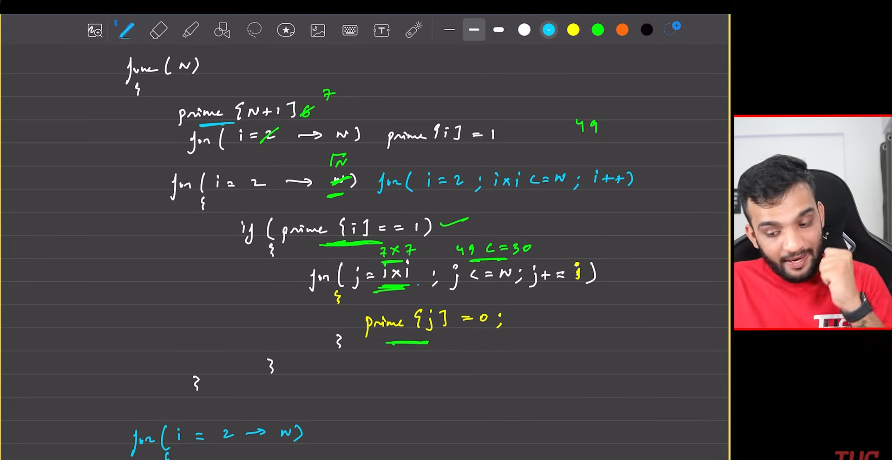 func(N)
{
prime[N+1] 6 7
for(i=2 → N) prime[i] = 1
49
for(i=2 → N) √N for(i=2; i×i <= N; i++)
{
if(prime[i] == 1) ✓
{
7×7 49 <= 30
for(j = i×i; j <= N; j += i)
{
prime[j] = 0;
}
}
}
for(i = 2 → N)
{